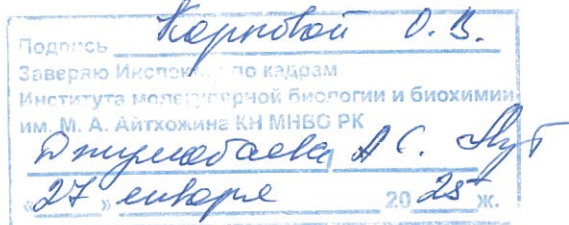 Подпись Карповой О. В.
Заверяю Инспектор по кадрам
Института молекулярной биологии и биохимии
им. М. А. Айтхожина КН МНВО РК
Джумабаева А С.
«27» января 2025 ж.